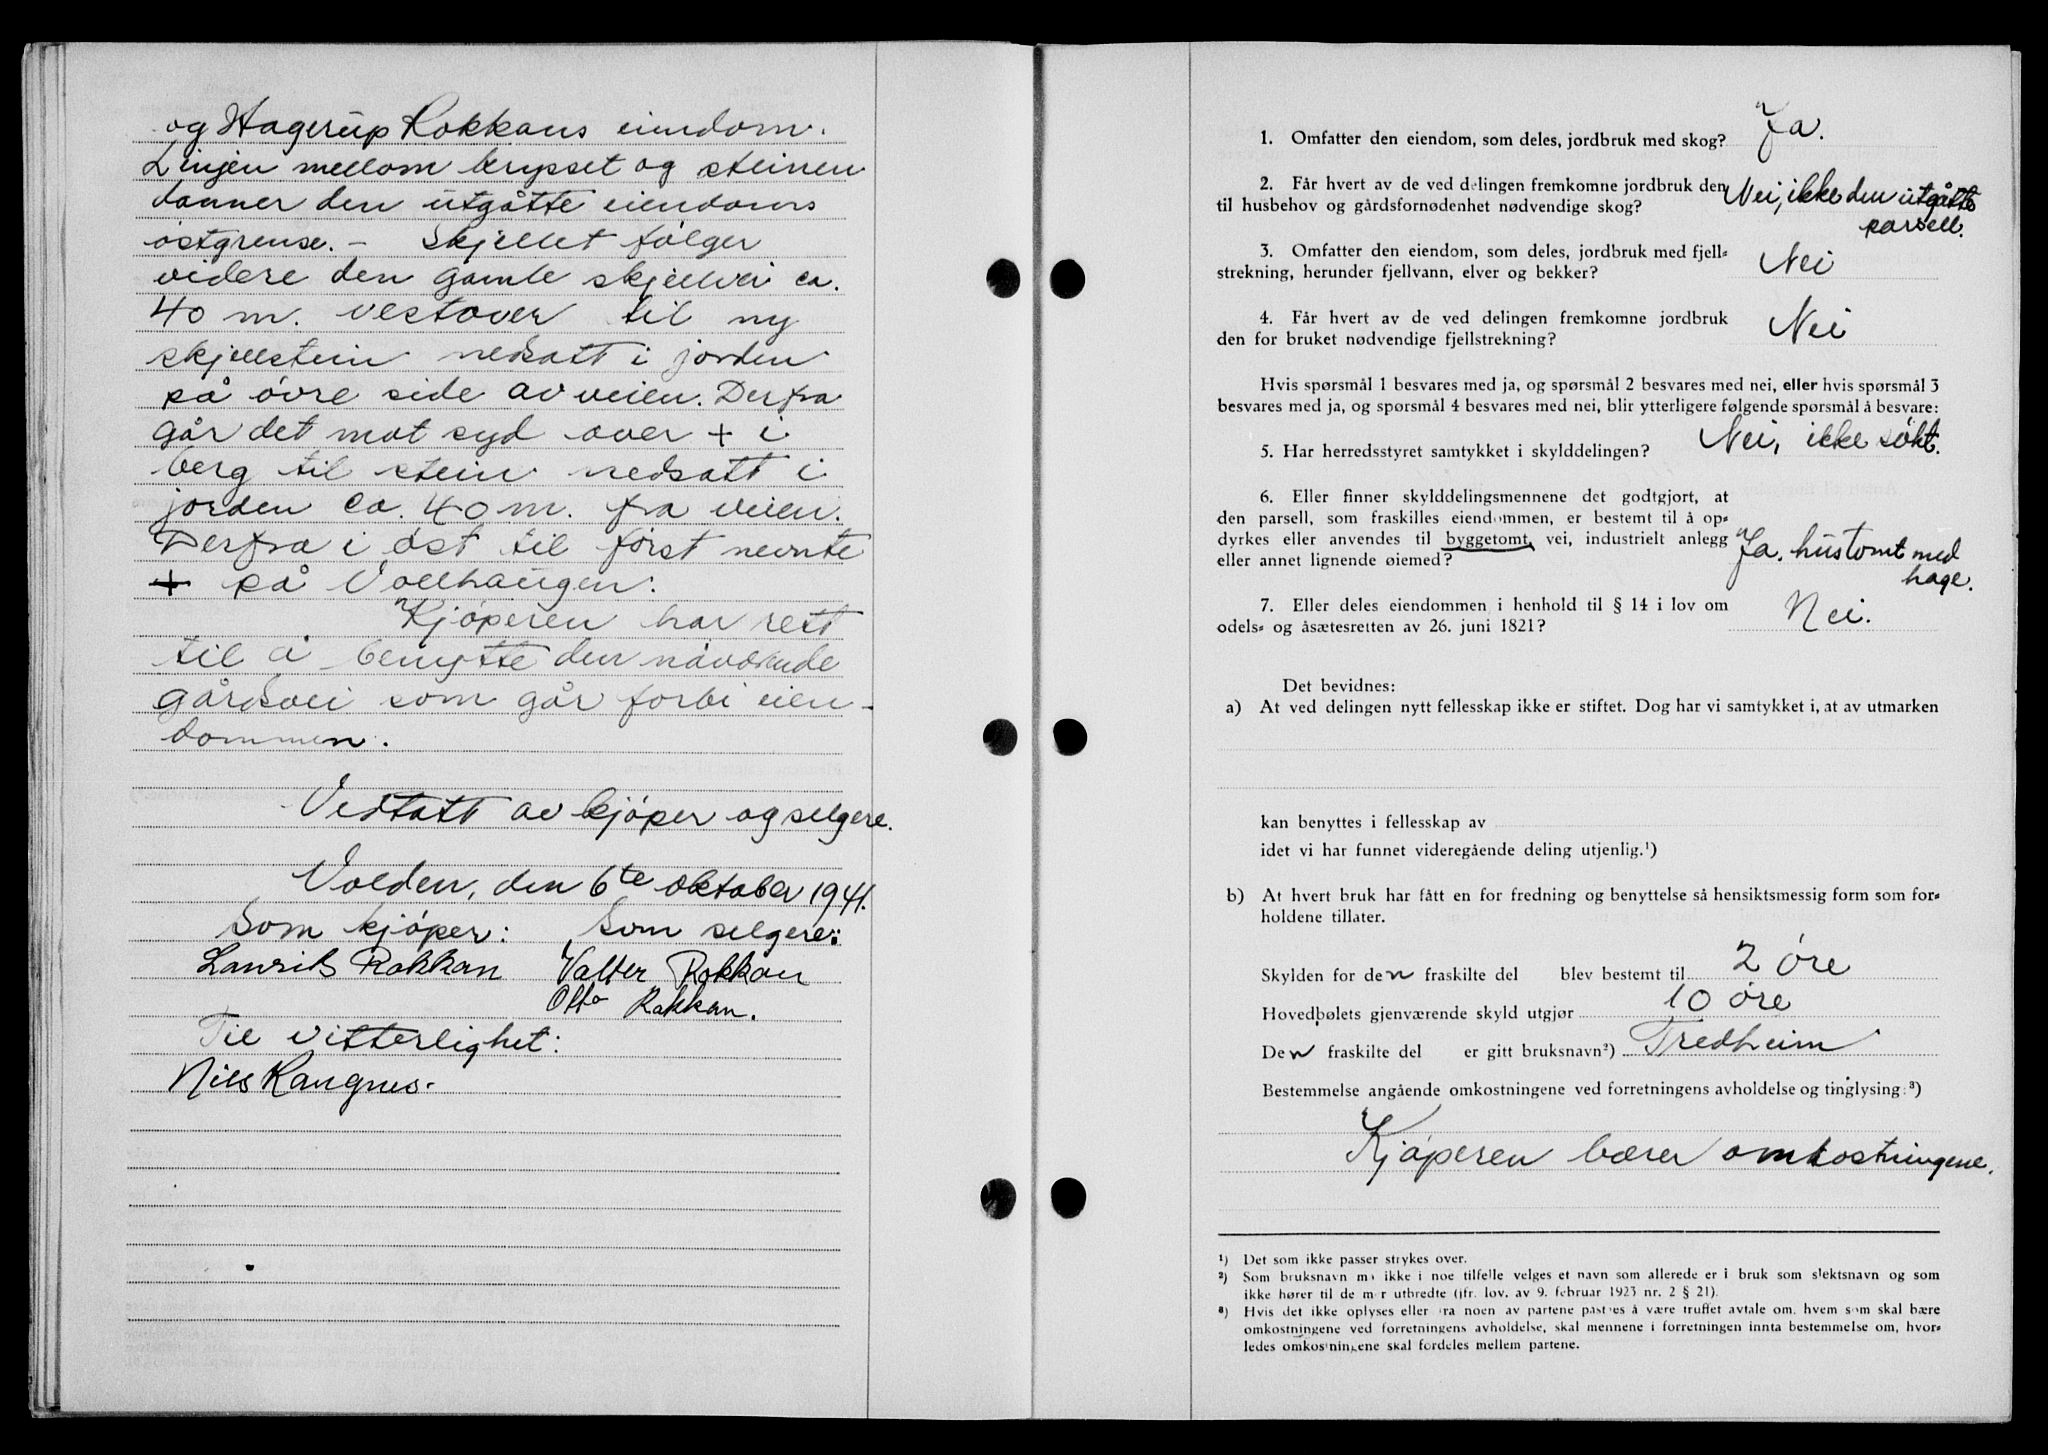 og Hagerup Rokkans eiendom.
Linjen mellom krysset og steinen
danner den utgåtte eiendoms
østgrense. – Skjellet følger
videre den gamle skjellvei ca.
40 m. vestover til ny
skjellstein nedsatt i jorden
på øvre side av veien. Derfra
går det mot syd over + i
berg til stein nedsatt i
jorden ca. 40 m. fra veien.
Derfra i øst til først nevnte
+ på Vollhaugen.
Kjøperen har rett
til å benytte den nåværende
gårdsvei som går forbi eien-
dommen.
Vedtatt av kjøper og selgere.
Volden, den 6te oktober 1941.
Som kjøper: Som selgere:
Laurits Rokkan Valter Rokkan
Otto Rokkan.
Til vitterlighet:
Nils Rangnes.
1. Omfatter den eiendom, som deles, jordbruk med skog? Ja.
2. Får hvert av de ved delingen fremkomne jordbruk den
til husbehov og gårdsfornødenhet nødvendige skog? Nei, ikke den utgåtte
parsell.
3. Omfatter den eiendom, som deles, jordbruk med fjell-
strekning, herunder fjellvann, elver og bekker? Nei
4. Får hvert av de ved delingen fremkomne jordbruk
den for bruket nødvendige fjellstrekning? Nei
Hvis spørsmål 1 besvares med ja, og spørsmål 2 besvares med nei, eller hvis spørsmål 3
besvares med ja, og spørsmål 4 besvares med nei, blir ytterligere følgende spørsmål å besvare:
5. Har herredsstyret samtykket i skylddelingen? Nei, ikke søkt.
6. Eller finner skylddelingsmennene det godtgjort, at
den parsell, som fraskilles eiendommen, er bestemt til å op-
dyrkes eller anvendes til byggetomt, vei, industrielt anlegg
eller annet lignende øiemed? Ja. hustomt med
hage.
7. Eller deles eiendommen i henhold til § 14 i lov om
odels- og åsætesretten av 26. juni 1821? Nei.
Det bevidnes:
a) At ved delingen nytt fellesskap ikke er stiftet. Dog har vi samtykket i, at av utmarken
kan benyttes i fellesskap av
idet vi har funnet videregående deling utjenlig.¹)
b) At hvert bruk har fått en for fredning og benyttelse så hensiktsmessig form som for-
holdene tillater.
Skylden for den fraskilte del blev bestemt til 2 øre
Hovedbølets gjenværende skyld utgjør 10 øre
Den fraskilte del er gitt bruksnavn²) Fredheim
Bestemmelse angående omkostningene ved forretningens avholdelse og tinglysing:³)
Kjøperen bærer omkostningene.
¹) Det som ikke passer strykes over.
²) Som bruksnavn må ikke i noe tilfelle velges et navn som allerede er i bruk som slektsnavn og som
ikke hører til de mer utbredte (jfr. lov. av 9. februar 1923 nr. 2 § 21).
³) Hvis det ikke oplyses eller fra noen av partene påstås å være truffet avtale om, hvem som skal bære
omkostningene ved forretningens avholdelse, skal mennene i forretningen innta bestemmelse om, hvor-
ledes omkostningene skal fordeles mellem partene.